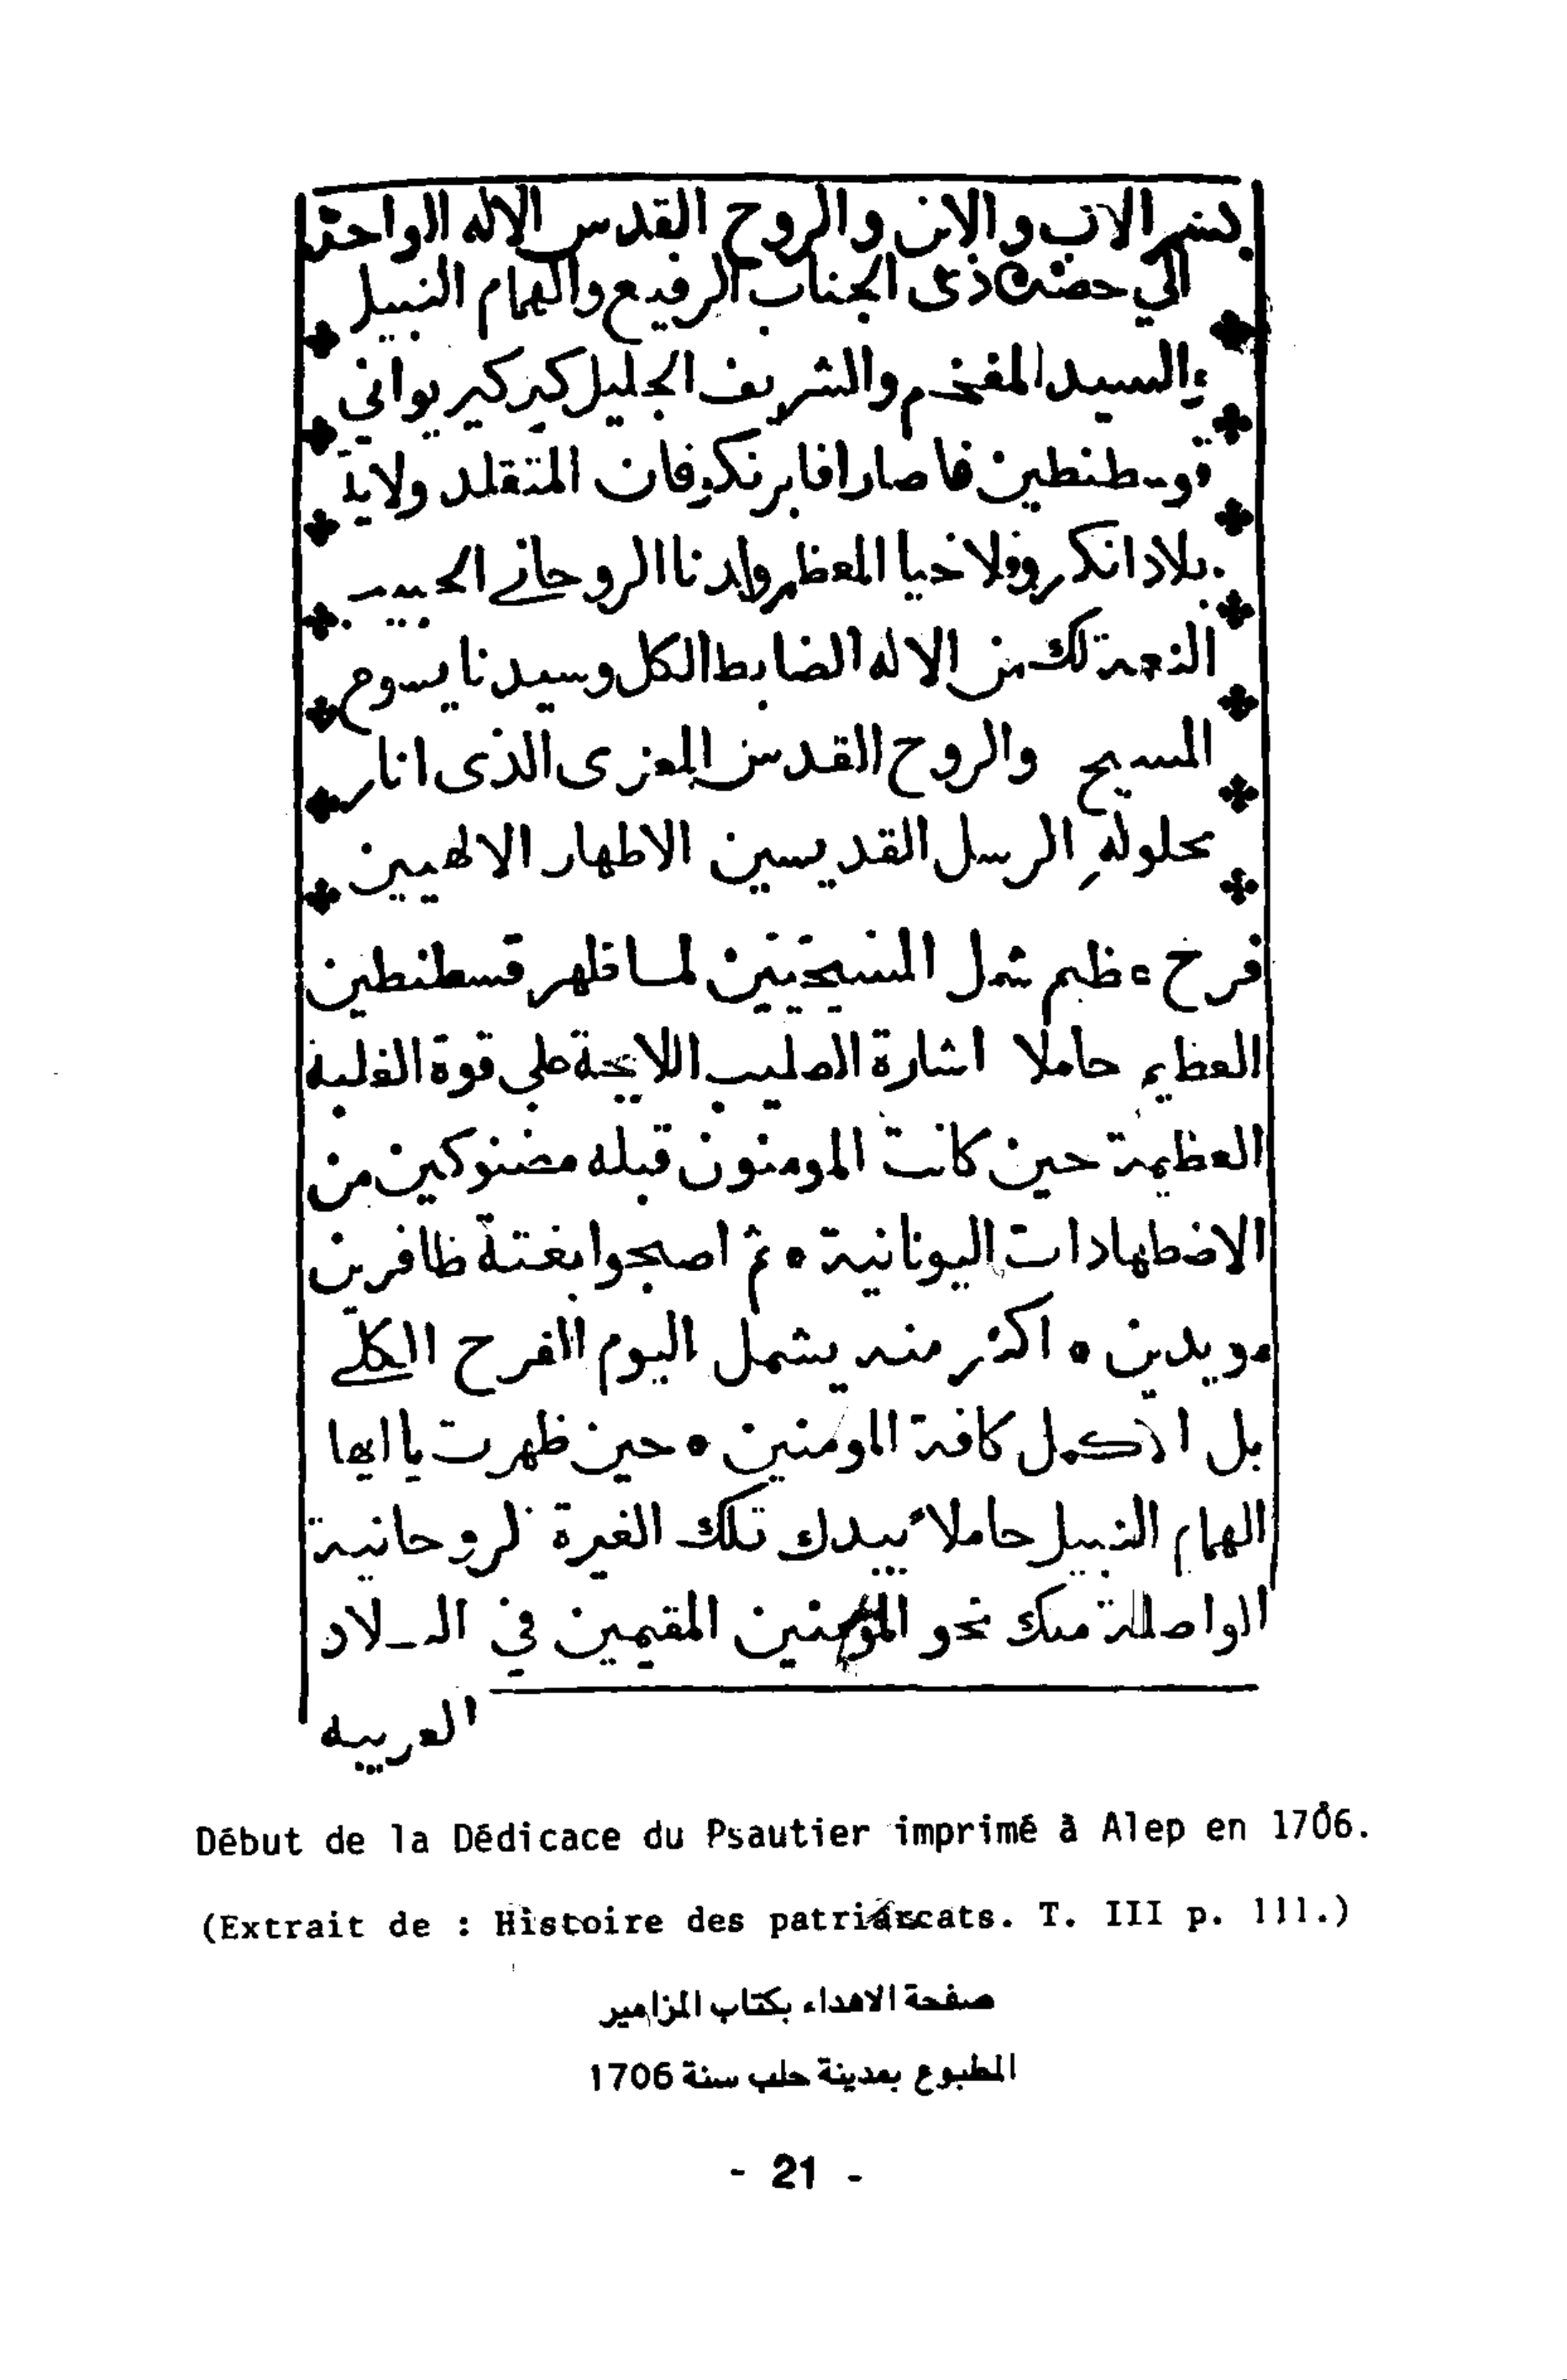 بسم الاب والابن والروح القدس الاله الواحد
الي حضرة ذى الجناب الرفيع والهمام النبيل
والسيد المفخم والشريف الجليل كير كير يواني
قوسطنطين فاصارافا برنكوفان المتقلد ولاية
بلاد انكروفلاخيا المعظم ولدنا الروحاني الحبيب
النعمة لك من الاله الضابط الكل وسيدنا يسوع
المسيح والروح القدس المعزى الذى انار
بحلوله الرسل القديسين الاطهار الالهيين
فرح عظيم شمل المسيحيين لما ظهر قسطنطين
العظيم حاملا اشارة الصليب اللايحة علي قوة الغلبة
العظيمة حين كانت المومنون قبله مضنوكين من
الاضطهادات اليونانية ه ثم اصبحوا بغتة ظافرين
مويدين ه اكثر منه يشمل اليوم الفرح الكلي
بل الاكمل كافة المومنين ه حين ظهرت يا ايها
الهمام النبيل حاملا بيدك تلك الغيرة الروحانية
الواصلة منك نحو المؤمنين المقيمين في البلاد
العربيه
Début de la Dédicace du Psautier imprimé à Alep en 1706.
(Extrait de : Histoire des patriarcats. T. III p. 111.)
صفحة الاهداء بكتاب المزامير
المطبوع بمدينة حلب سنة 1706
- 21 -